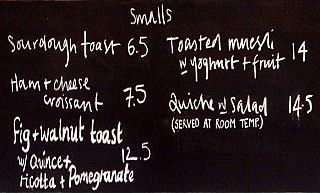 Smalls
Sourdough toast 6.5
Ham + cheese
croissant 7.5
Fig + walnut toast
w/ Quince + 12.5
ricotta + Pomegranate
Toasted muesli
w yoghurt + fruit 14
Quiche w Salad 14.5
(SERVED AT ROOM TEMP.)